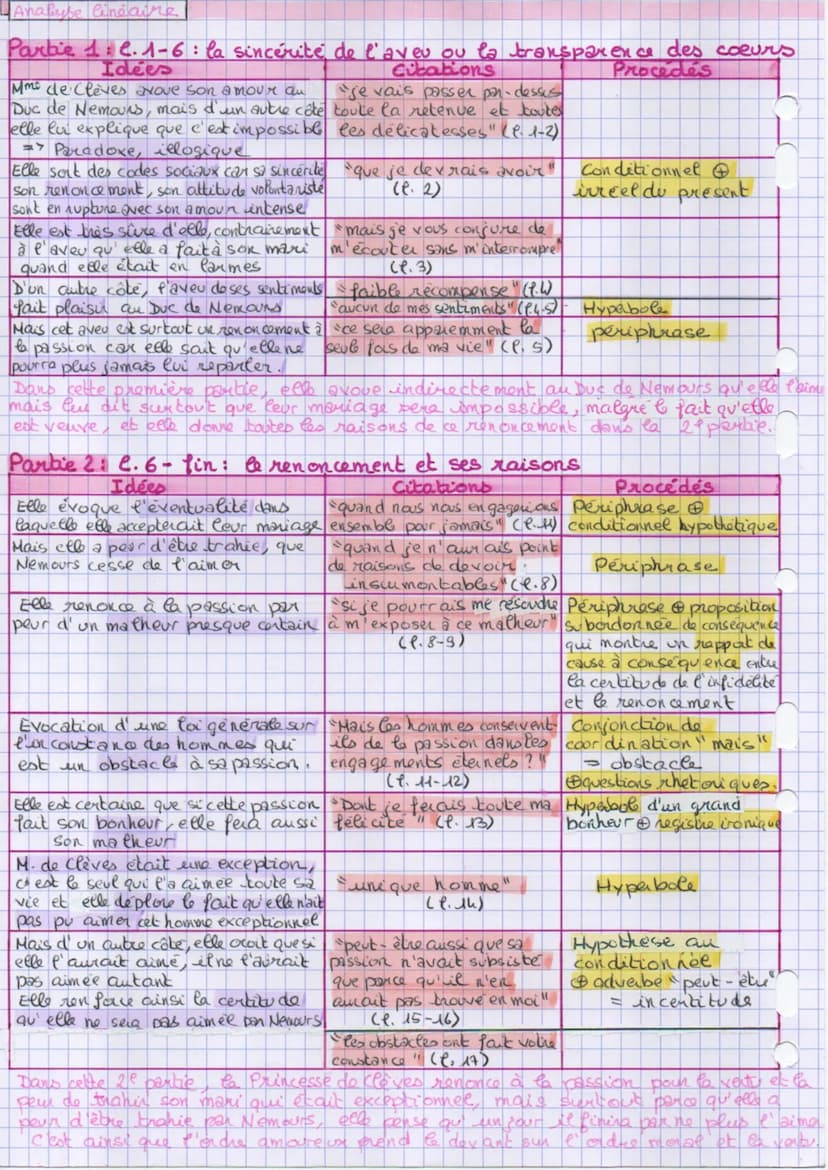 Analyse linéaire
Partie 1 : l. 1-6 : la sincérité de l'aveu ou la transparence des coeurs
Idées
Citations
Procédés
Mme de Clèves avoue son amour au
Duc de Nemours, mais d'un autre côté
elle lui explique que c'est impossible
=> Paradoxe, illogique
"je vais passer par-dessus
toute la retenue et toutes
les délicatesses" (l. 1-2)
Elle sort des codes sociaux car sa sincérité
son renoncement, son attitude volontariste
sont en rupture avec son amour intense
"que je devrais avoir"
(l. 2)
Conditionnel ⊕
irréel du présent
Elle est très sûre d'elle, contrairement
à l'aveu qu'elle a fait à son mari
quand elle était en larmes
"mais je vous conjure de
m'écouter sans m'interrompre"
(l. 3)
D'un autre côté, l'aveu de ses sentiments
fait plaisir au Duc de Nemours
"faible récompense" (l.4)
"aucun de mes sentiments" (l.4-5)
Hyperbole
Mais cet aveu est surtout un renoncement à
la passion car elle sait qu'elle ne
pourra plus jamais lui reparler.
"ce sera apparemment la
seule fois de ma vie" (l. 5)
périphrase
Dans cette première partie, elle avoue indirectement au Duc de Nemours qu'elle l'aime
mais lui dit surtout que leur mariage sera impossible, malgré le fait qu'elle
est veuve, et elle donne toutes les raisons de ce renoncement dans la 2e partie.
Partie 2 : l. 6 - fin : le renoncement et ses raisons
Idées
Citations
Procédés
Elle évoque l'éventualité dans
laquelle elle accepterait leur mariage
"quand nous nous engagerions
ensemble pour jamais" (l. 11)
Périphrase ⊕
conditionnel hypothétique
Mais elle a peur d'être trahie, que
Nemours cesse de l'aimer
"quand je n'aurais point
de raisons de devoir
insurmontables" (l. 8)
Périphrase
Elle renonce à la passion par
peur d'un malheur presque certain
"si je pourrais me résoudre
à m'exposer à ce malheur"
(l. 8-9)
Périphrase ⊕ proposition
subordonnée de conséquence
qui montre un rapport de
cause à conséquence entre
la certitude de l'infidélité
et le renoncement
Evocation d'une loi générale sur
l'inconstance des hommes qui
est un obstacle à sa passion.
"Mais les hommes conservent-
ils de la passion dans les
engagements éternels ?"
(l. 11-12)
Conjonction de
coordination "mais"
= obstacle
⊕ questions rhétoriques.
Elle est certaine que si cette passion
fait son bonheur, elle fera aussi
son malheur
"Dont je ferais toute ma
félicité" (l. 13)
Hyperbole d'un grand
bonheur ⊕ registre ironique
M. de Clèves était une exception,
c'est le seul qui l'a aimée toute sa
vie et elle déplore le fait qu'elle n'ait
pas pu aimer cet homme exceptionnel
"unique homme"
(l. 14)
Hyperbole
Mais d'un autre côté, elle croit que si
elle l'aurait aimé, il ne l'aurait
pas aimée autant
Elle renforce ainsi la certitude
qu'elle ne sera pas aimée par Nemours
"peut-être aussi que sa
passion n'avait subsisté
que parce qu'il n'en
aurait pas trouvé en moi"
(l. 15-16)
Hypothèse au
conditionnel
⊕ adverbe "peut-être"
= incertitude
"les obstacles ont fait votre
constance" (l. 17)
Dans cette 2e partie, la Princesse de Clèves renonce à la passion pour la vertu et la
peur de trahir son mari qui était exceptionnel, mais surtout parce qu'elle a
peur d'être trahie par Nemours, elle pense qu'un jour il finira par ne plus l'aimer
C'est ainsi que l'ordre amoureux prend le devant sur l'ordre moral et la vertu.